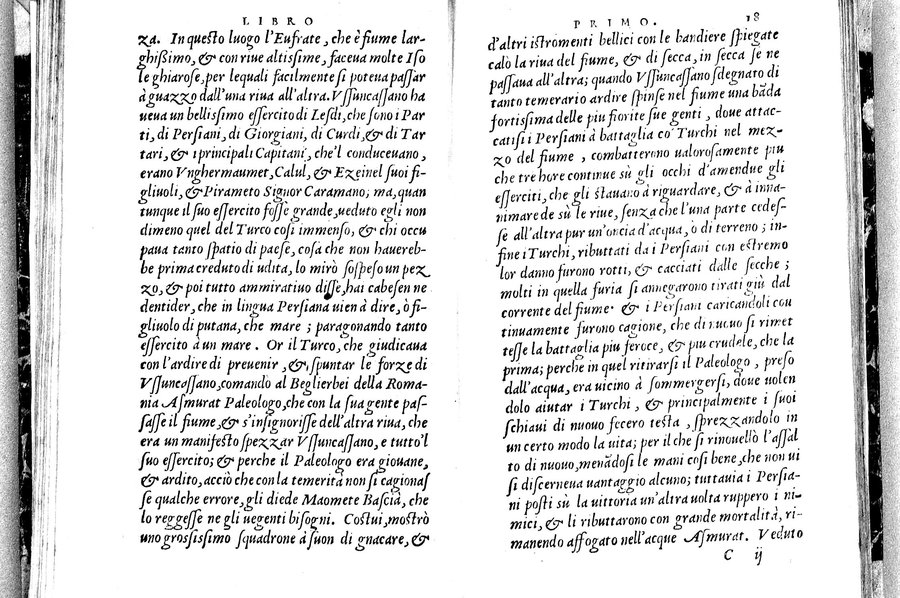 LIBRO
za. In questo luogo l'Eufrate, che è fiume lar-
ghissimo, & con riue altissime, faceua molte Iso
le ghiarose, per lequali facilmente si poteua passar
à guazzo dall'una riua all'altra. Vssuncassano ha
ueua un bellissimo essercito di Lesdi, che sono i Par
ti, di Persiani, di Giorgiani, di Curdi, & di Tar
tari, & i principali Capitani, che'l conduceuano,
erano Vnghermaumet, Calul, & Ezeinel suoi fi-
gliuoli, & Pirameto Signor Caramano; ma, quan
tunque il suo essercito fosse grande, ueduto egli non
dimeno quel del Turco cosi immenso, & chi occu
paua tanto spatio di paese, cosa che non hauereb-
be prima creduto di udita, lo mirò sospeso un pez
zo, & poi tutto ammiratiuo disse, hai cabesen ne
dentider, che in lingua Persiana uien à dire, ò fi-
gliuolo di putana, che mare; paragonando tanto
essercito à un mare. Or il Turco, che giudicaua
con l'ardire di preuenir, & spuntar le forze di
Vssuncassano, comandò al Beglierbei della Roma-
nia Asmurat Paleologo, che con la sua gente pas-
sasse il fiume, & s'insignorisse dell'altra riua, che
era un manifesto spezzar Vssuncassano, e tutto'l
suo essercito; & perche il Paleologo era giouane,
& ardito, acciò che con la temerità non si cagionas
se qualche errore, gli diede Maomete Bascià, che
lo reggesse ne gli uegenti bisogni. Costui, mostrò
uno grossissimo squadrone à suon di gnacare, &
PRIMO. 18
d'altri istromenti bellici con le bandiere spiegate
calò la riua del fiume, & di secca, in secca se ne
passaua all'altra; quando Vssuncassano sdegnato di
tanto temerario ardire spinse nel fiume una bāda
fortissima delle piu fiorite sue genti, doue attac-
catisi i Persiani à battaglia co' Turchi nel mez-
zo del fiume, combatterono ualorosamente piu
che tre hore continue sù gli occhi d'amendue gli
esserciti, che gli stauano à riguardare, & à inna-
nimare de sù le riue, senza che l'una parte cedes-
se all'altra pur un'oncia d'acqua, ò di terreno; in-
fine i Turchi, ributtati da i Persiani con estremo
lor danno furono rotti, & cacciati dalle secche;
molti in quella furia si annegarono tirati giù dal
corrente del fiume· & i Persiani caricandoli con
tinuamente furono cagione, che di nuouo si rimet
tesse la battaglia piu feroce, & piu crudele, che la
prima; perche in quel ritirarsi il Paleologo, preso
dall'acqua, era uicino à sommergersi, doue uolen
dolo aiutar i Turchi, & principalmente i suoi
schiaui di nuouo fecero testa, sprezzandolo in
un certo modo la uita; per il che si rinouellò l'assal
to di nuouo, menādosi le mani cosi bene, che non ui
si discerneua uantaggio alcuno; tuttauia i Persia-
ni posti sù la uittoria un'altra uolta ruppero i ni-
mici, & li ributtarono con grande mortalità, ri-
manendo affogato nell'acque Asmurat. Veduto
C ij